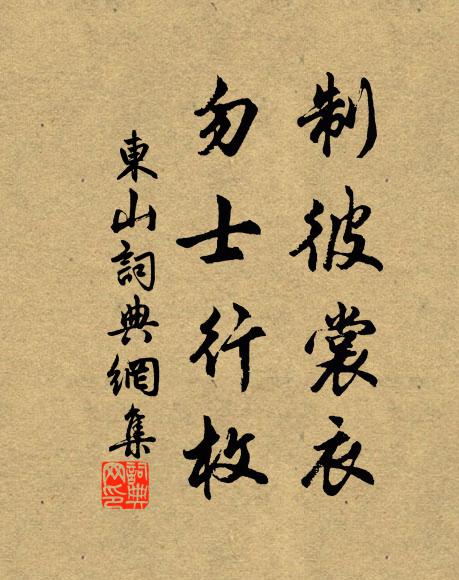 制彼裳衣
勿士行枚
東山詞典網集
詞典
网印